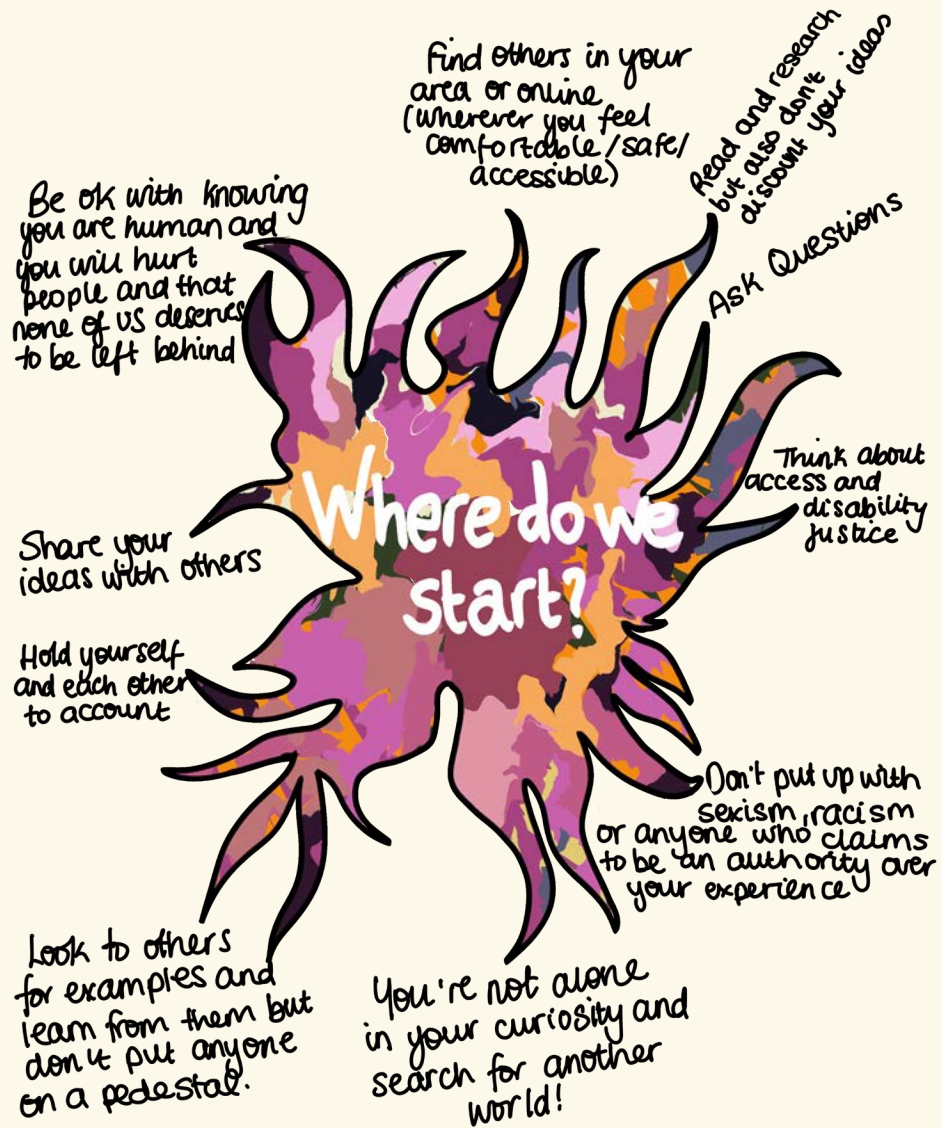 Where do we
start?
Find others in your
area or online
(wherever you feel
comfortable/safe/
accessible)
Read and research
but also don't
discount your ideas
Ask Questions
Think about
access and
disability
justice
Don't put up with
sexism, racism
or anyone who claims
to be an authority over
your experience
You're not alone
in your curiosity and
search for another
world!
Look to others
for examples and
learn from them but
don't put anyone
on a pedestal.
Hold yourself
and each other
to account
Share your
ideas with others
Be ok with knowing
you are human and
you will hurt
people and that
none of us deserves
to be left behind